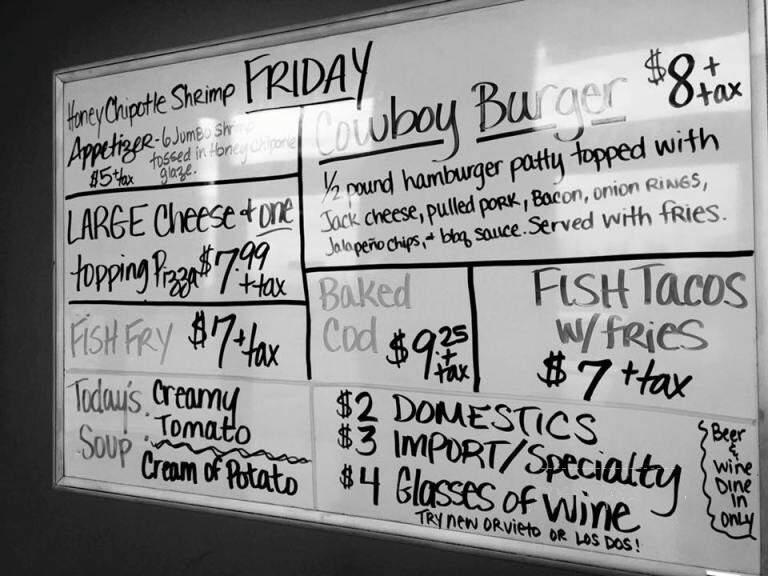 FRIDAY
Honey Chipotle Shrimp
Appetizer - 6 Jumbo Shrimp
tossed in Honey Chipotle
glaze.
$5 + tax
Cowboy Burger $8 + tax
1/2 pound hamburger patty topped with
Jack cheese, pulled pork, Bacon, onion RINGS,
Jalapeño chips, + bbq sauce. Served with fries.
LARGE Cheese + one
topping Pizza $7.99
+ tax
FISH FRY $7 + tax
Baked
Cod $9.25
+ tax
FISH Tacos
w/ fries
$7 + tax
Today's
Soup
Creamy
Tomato
Cream of Potato
$2 DOMESTICS
$3 IMPORT/Specialty
$4 Glasses of wine
TRY new ORvieto OR LOS DOS!
Beer
&
wine
Dine
In
Only